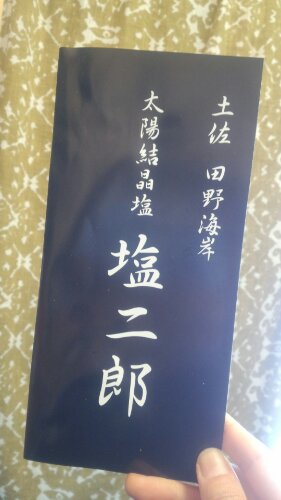 土佐 田野海岸
太陽結晶塩
塩二郎